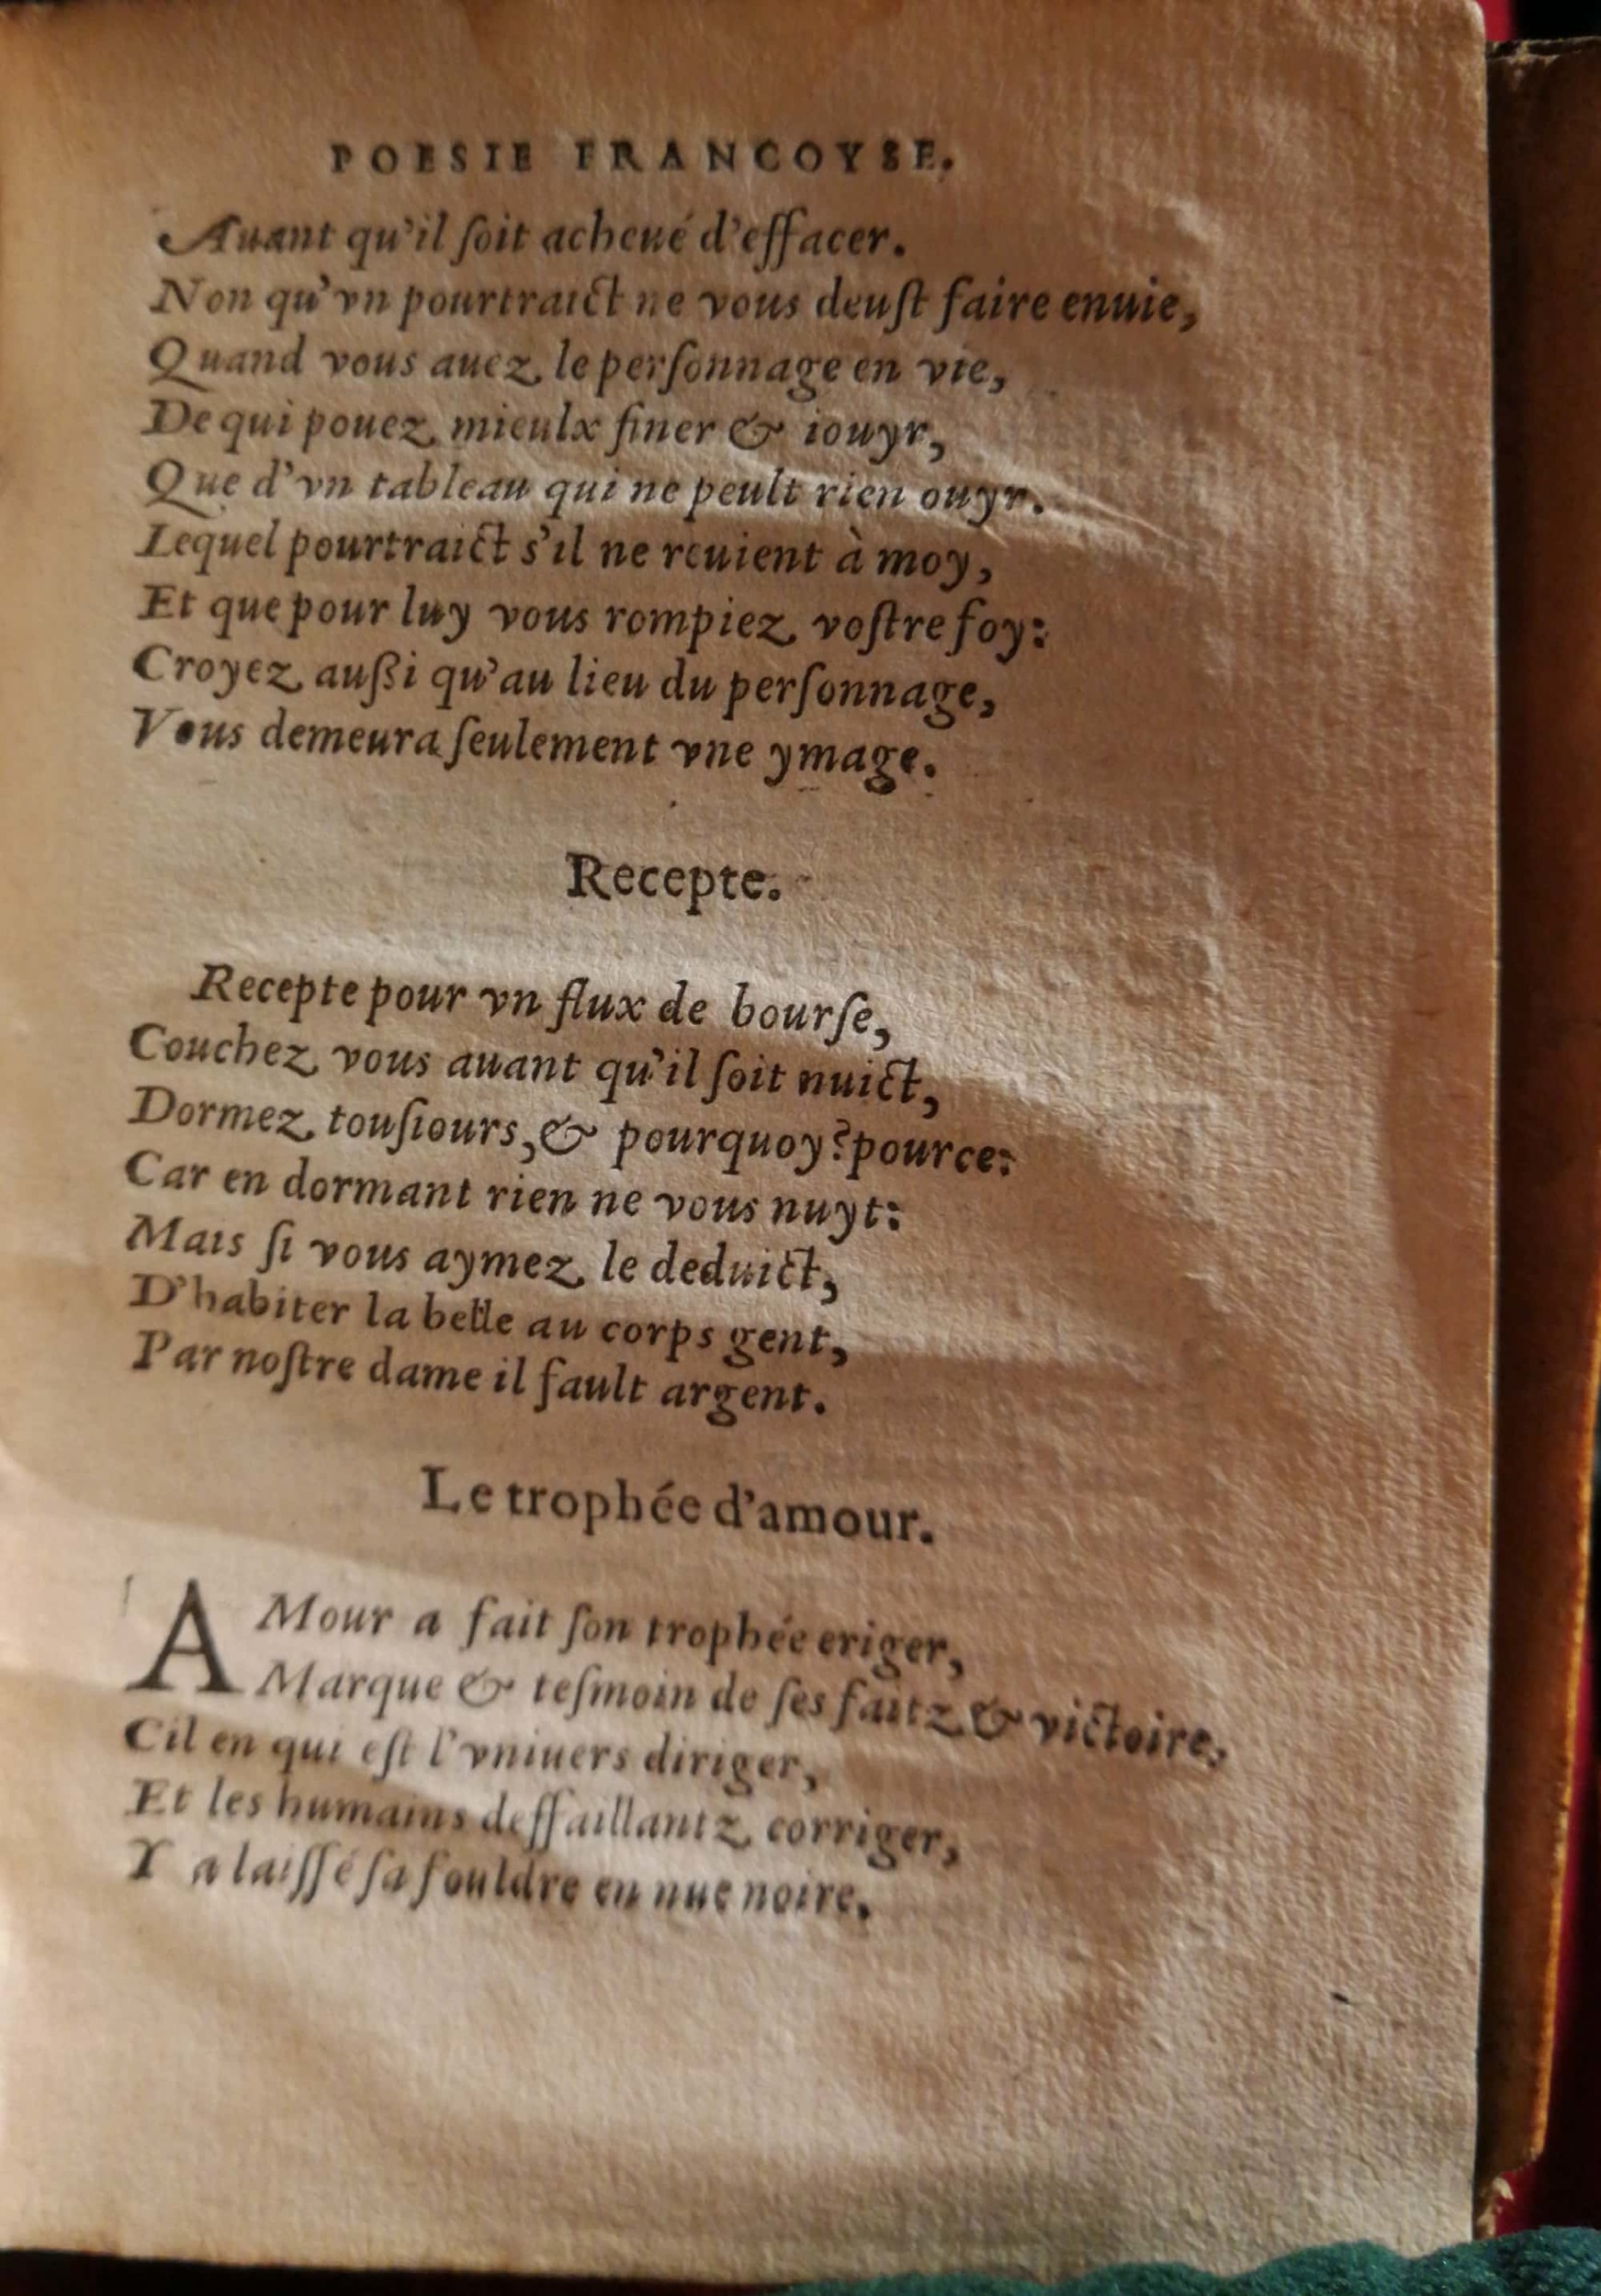 POESIE FRANCOYSE.
Auant qu'il ſoit acheué d'effacer.
Non qu'vn pourtraict ne vous deuſt faire enuie,
Quand vous auez le perſonnage en vie,
De qui pouez mieulx finer & iouyr,
Que d'vn tableau qui ne peult rien ouyr.
Lequel pourtraict s'il ne reuient à moy,
Et que pour luy vous rompiez voſtre foy:
Croyez außi qu'au lieu du perſonnage,
Vous demeura ſeulement vne ymage.
Recepte.
Recepte pour vn flux de bourſe,
Couchez vous auant qu'il ſoit nuict,
Dormez touſiours, & pourquoy? pource:
Car en dormant rien ne vous nuyt:
Mais ſi vous aymez le deduict,
D'habiter la belle au corps gent,
Par noſtre dame il fault argent.
Le trophée d'amour.
AMour a fait ſon trophée eriger,
Marque & teſmoin de ſes faitz & victoire,
Cil en qui eſt l'vniuers diriger,
Et les humains deffaillantz corriger,
Y a laiſſé ſa fouldre en nue noire.